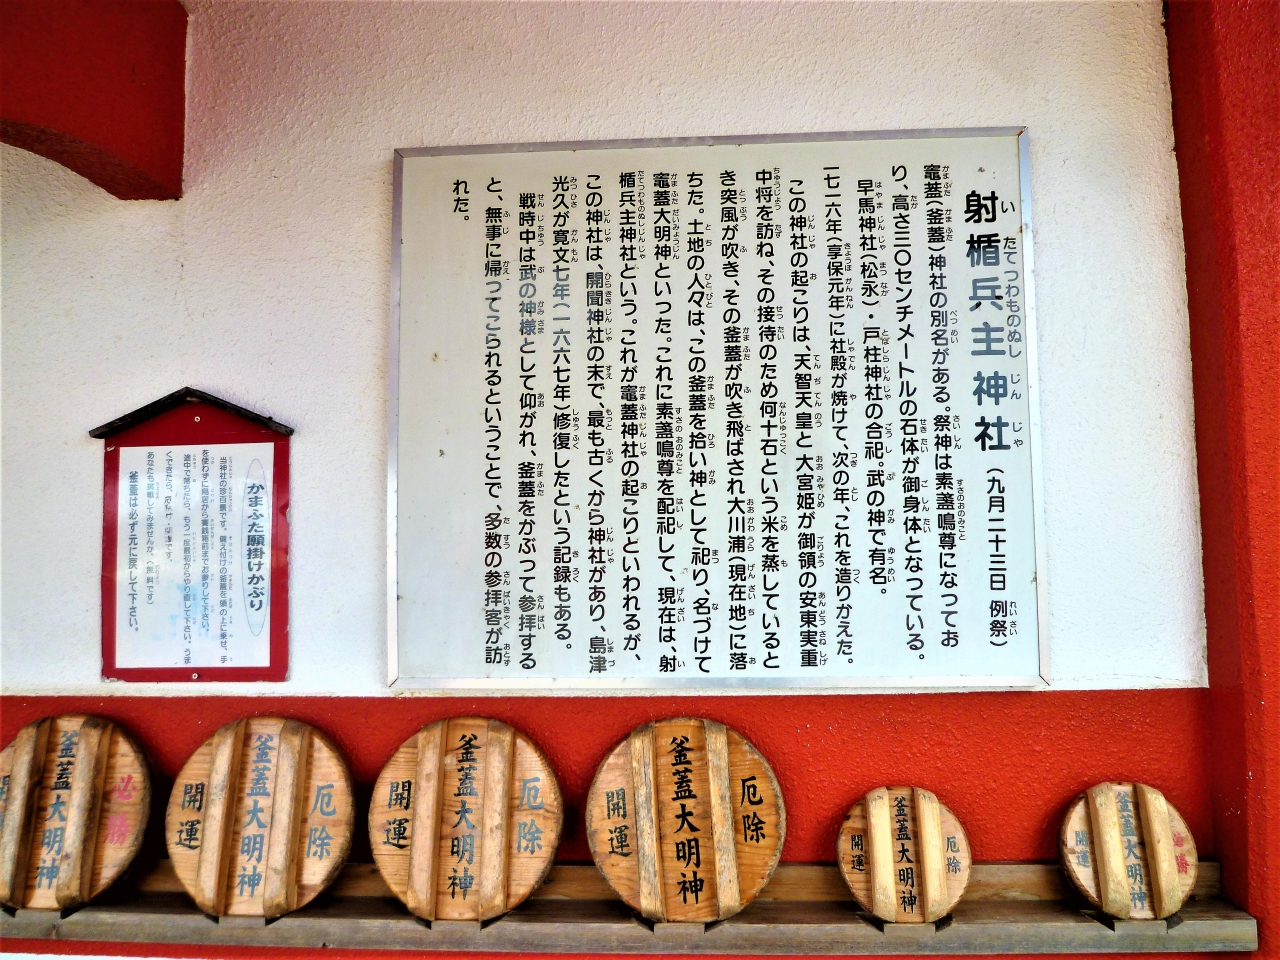 射楯兵主神社（九月二十三日 例祭）
竈蓋（釜蓋）神社の別名がある。祭神は素盞鳴尊になってお
り、高さ三〇センチメートルの石体が御身体となっている。
早馬神社（松永）・戸柱神社の合祀。武の神で有名。
一七一六年（享保元年）に社殿が焼けて、次の年、これを造りかえた。
この神社の起こりは、天智天皇と大宮姫が御領の安東実重
中将を訪ね、その接待のため何十石という米を蒸していると
き突風が吹き、その釜蓋が吹き飛ばされ大川浦（現在地）に落
ちた。土地の人々は、この釜蓋を拾い神として祀り、名づけて
竈蓋大明神といった。これに素盞鳴尊を配祀して、現在は、射
楯兵主神社という。これが竈蓋神社の起こりといわれるが、
この神社は、開聞神社の末で、最も古くから神社があり、島津
光久が寛文七年（一六六七年）修復したという記録もある。
戦時中は武の神様として仰がれ、釜蓋をかぶって参拝する
と、無事に帰ってこられるということで、多数の参拝客が訪
れた。
かまふた願掛けかぶり
当神社の珍百景です。備え付けの釜蓋を頭の上に乗せ、手
を使わずに鳥居から賽銭箱前までお参りして下さい。
途中で落ちたら、もう一度最初からやり直して下さい。うま
くできたら、
あなたも挑戦してみませんか。（無料です）
釜蓋は必ず元に戻して下さい。
必勝
釜蓋大明神
開
厄除
釜蓋大明神
開運
厄除
釜蓋大明神
開運
厄除
釜蓋大明神
開運
厄除
釜蓋大明神
開運
必勝
釜蓋大明神
開運